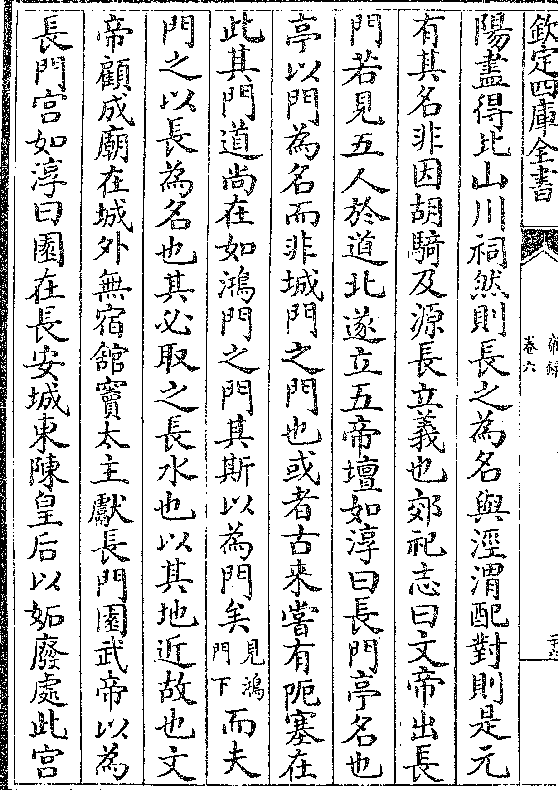 欽定四庫全書
卷六
陽盡得比山川祠然則長之為名與涇渭配對則是元
有其名非因胡騎及源長立義也郊祀志曰文帝出長
門若見五人於道北遂立五帝壇如淳曰長門亭名也
亭以門為名而非城門之門也或者古來嘗有阨塞在
此其門道尚在如鴻門之門其斯以為門矣見鴻門下而夫
門之以長為名也其必取之長水也以其地近故也文
帝顧成廟在城外無宿舘竇太主獻長門園武帝以為
長門宫如淳曰園在長安城東陳皇后以妬廢處此宫